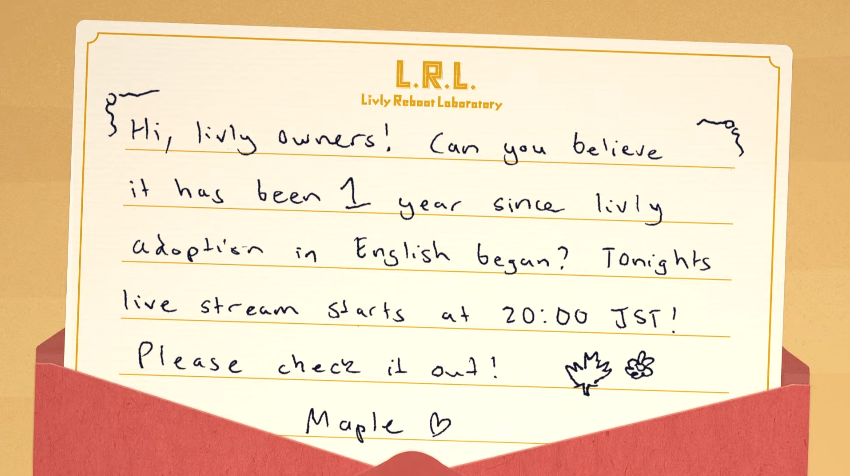 L.R.L.
Livly Reboot Laboratory
Hi, livly owners! Can you believe
it has been 1 year since livly
adoption in English began? Tonights
live stream starts at 20:00 JST!
Please check it out!
Maple ♡